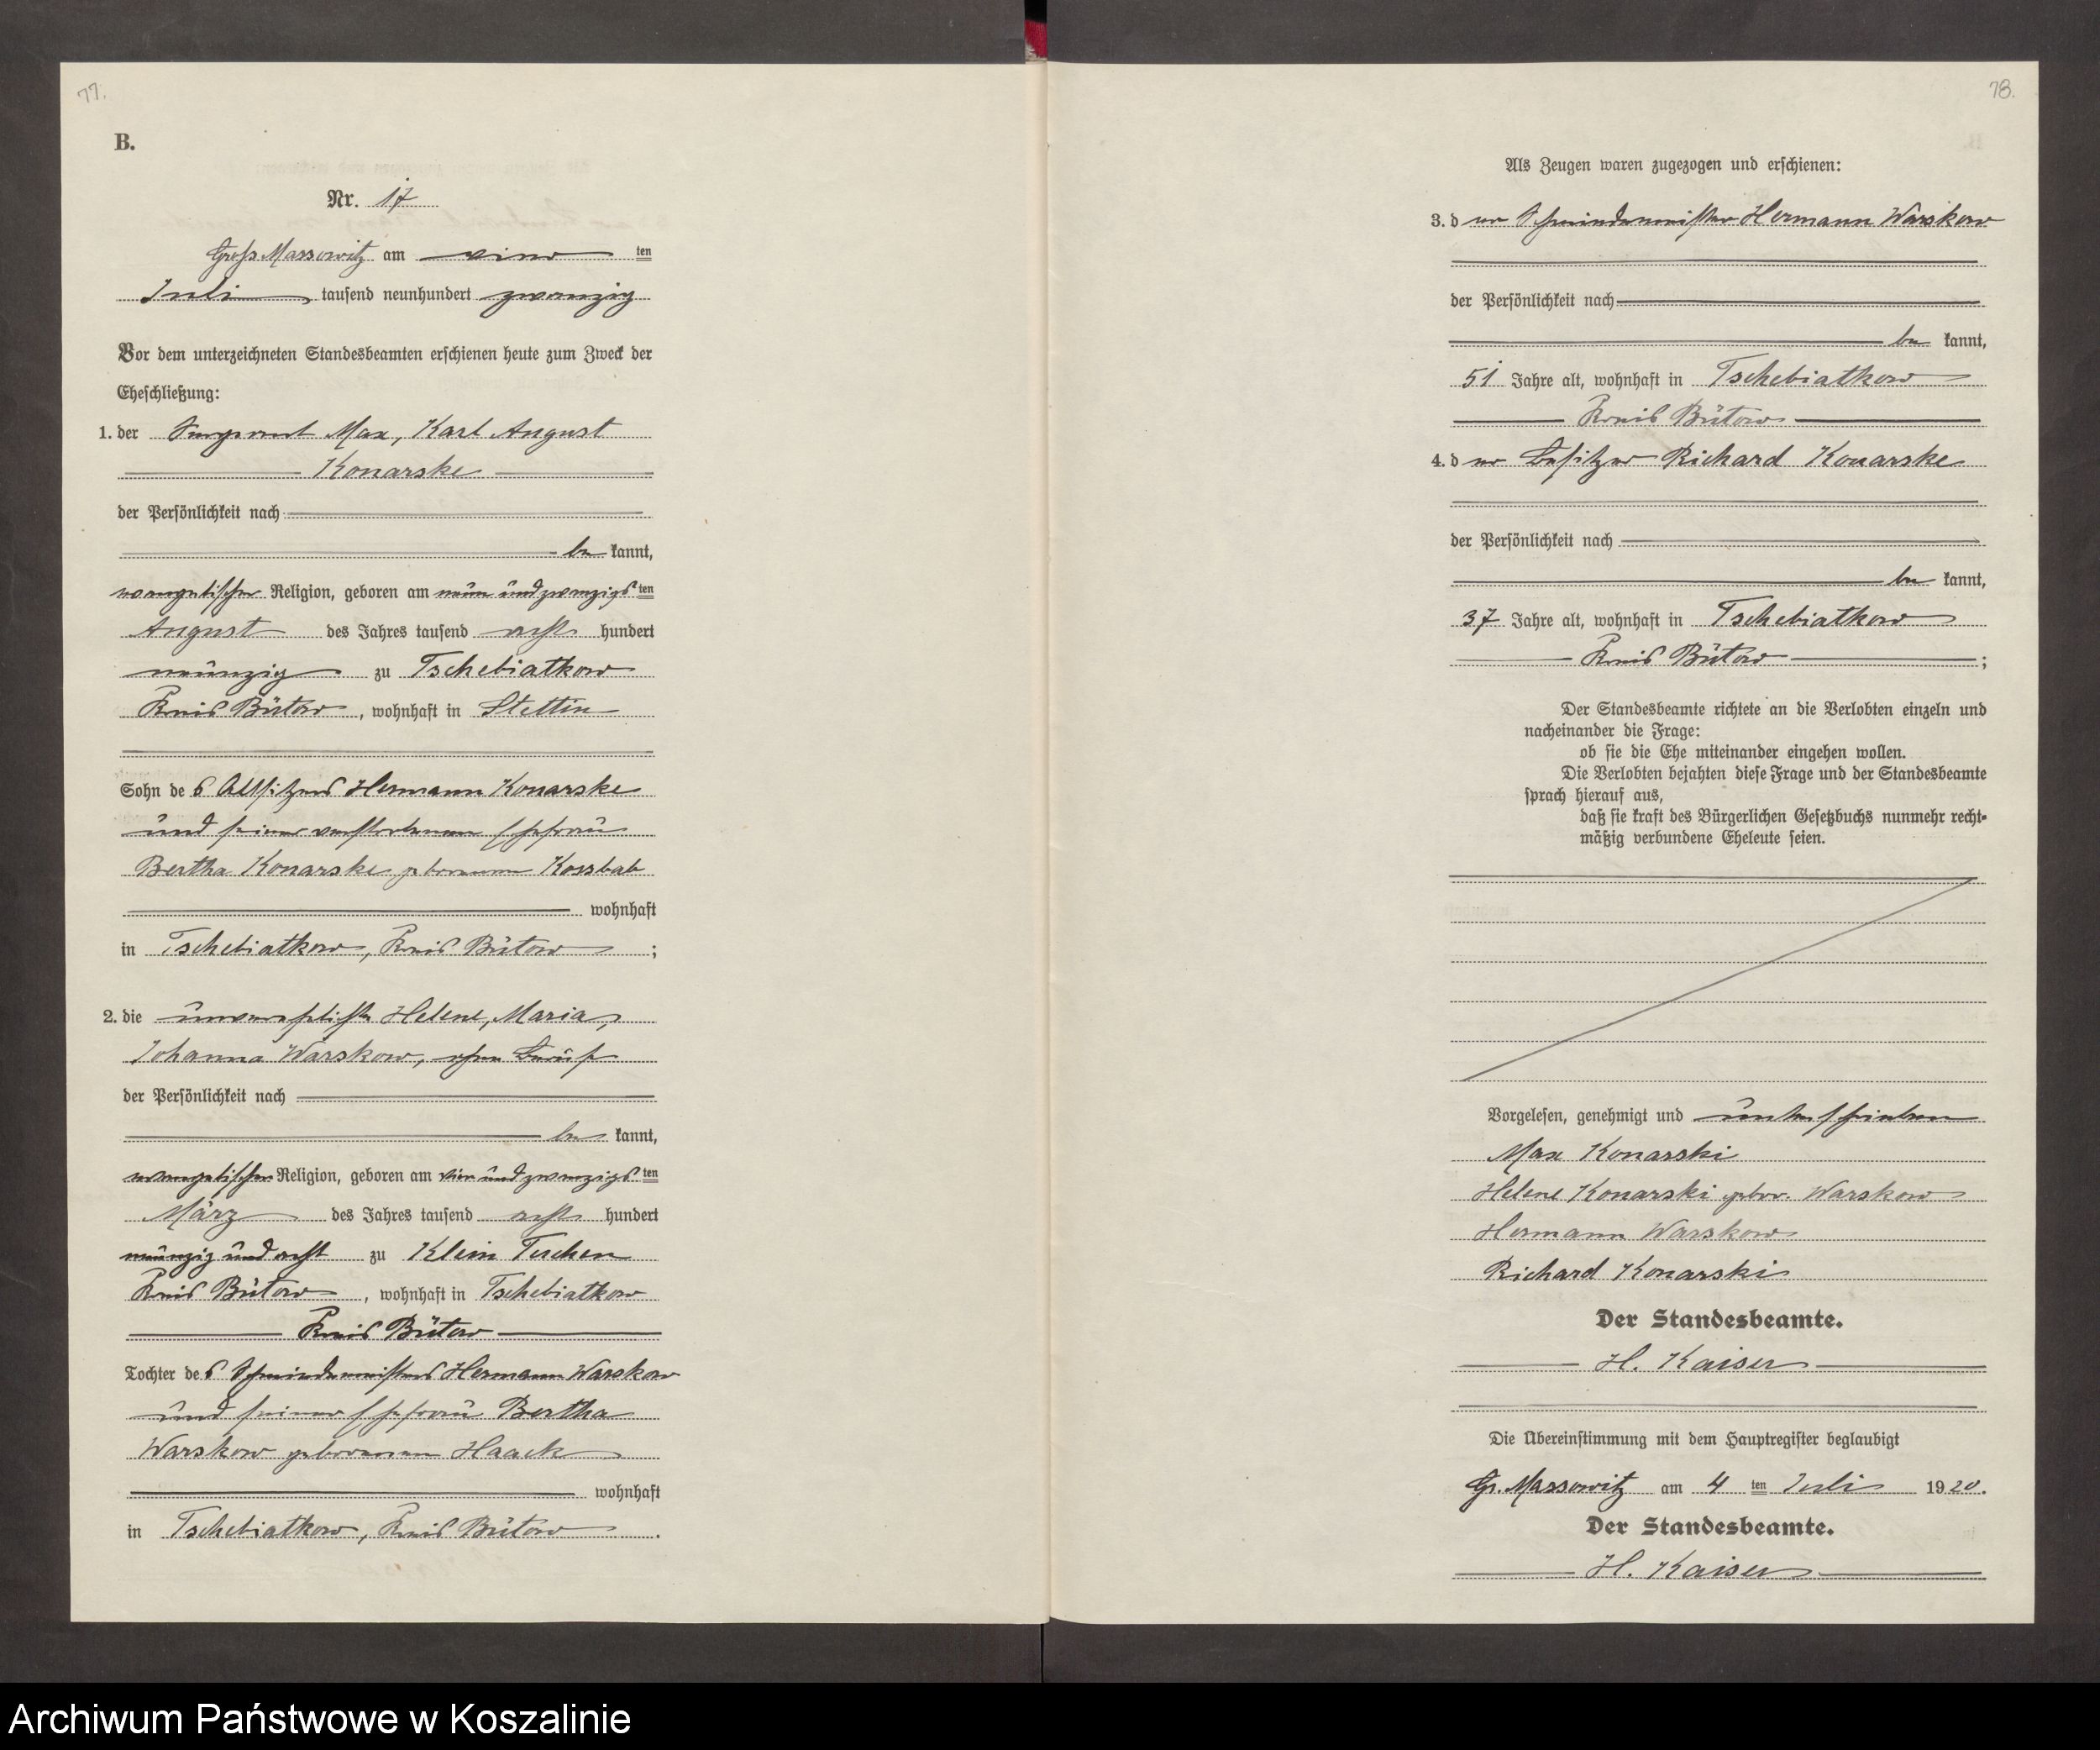 77.
B.
Nr. 17
Gross Massowitz am vier ten
Juli tausend neunhundert zwanzig
Vor dem unterzeichneten Standesbeamten erschienen heute zum Zweck der
Eheschließung:
1. der Sergeant Max, Karl August
Konarske
der Persönlichkeit nach
be kannt,
evangelischer Religion, geboren am neun und zwanzigs ten
August des Jahres tausend acht hundert
neunzig zu Tschebiatkow
Kreis Bütow, wohnhaft in Stettin
Sohn des Altsitzers Hermann Konarske
und seiner verstorbenen Ehefrau
Bertha Konarske geborenen Kossbab
wohnhaft
in Tschebiatkow, Kreis Bütow;
2. die unverehelichte Helene, Maria,
Johanna Warskow, ohne Beruf
der Persönlichkeit nach
be kannt,
evangelischer Religion, geboren am vier und zwanzigs ten
März des Jahres tausend acht hundert
neunzig und acht zu Klein Tuchen
Kreis Bütow, wohnhaft in Tschebiatkow
Kreis Bütow
Tochter des Schmiedemeisters Hermann Warskow
und seiner Ehefrau Bertha
Warskow geborenen Haack
wohnhaft
in Tschebiatkow, Kreis Bütow.
78.
Als Zeugen waren zugezogen und erschienen:
3. der Schmiedemeister Hermann Warskow
der Persönlichkeit nach
be kannt,
51 Jahre alt, wohnhaft in Tschebiatkow
Kreis Bütow
4. der Besitzer Richard Konarske
der Persönlichkeit nach
be kannt,
37 Jahre alt, wohnhaft in Tschebiatkow
Kreis Bütow;
Der Standesbeamte richtete an die Verlobten einzeln und
nacheinander die Frage:
ob sie die Ehe miteinander eingehen wollen.
Die Verlobten bejahten diese Frage und der Standesbeamte
sprach hierauf aus,
daß sie kraft des Bürgerlichen Gesetzbuchs nunmehr recht-
mäßig verbundene Eheleute seien.
Vorgelesen, genehmigt und unterschrieben
Max Konarski
Helene Konarski gebor. Warskow
Hermann Warskow
Richard Konarski
Der Standesbeamte.
H. Kaiser
Die Übereinstimmung mit dem Hauptregister beglaubigt
Gr. Massowitz am 4 ten Juli 1920.
Der Standesbeamte.
H. Kaiser
Archiwum Państwowe w Koszalinie